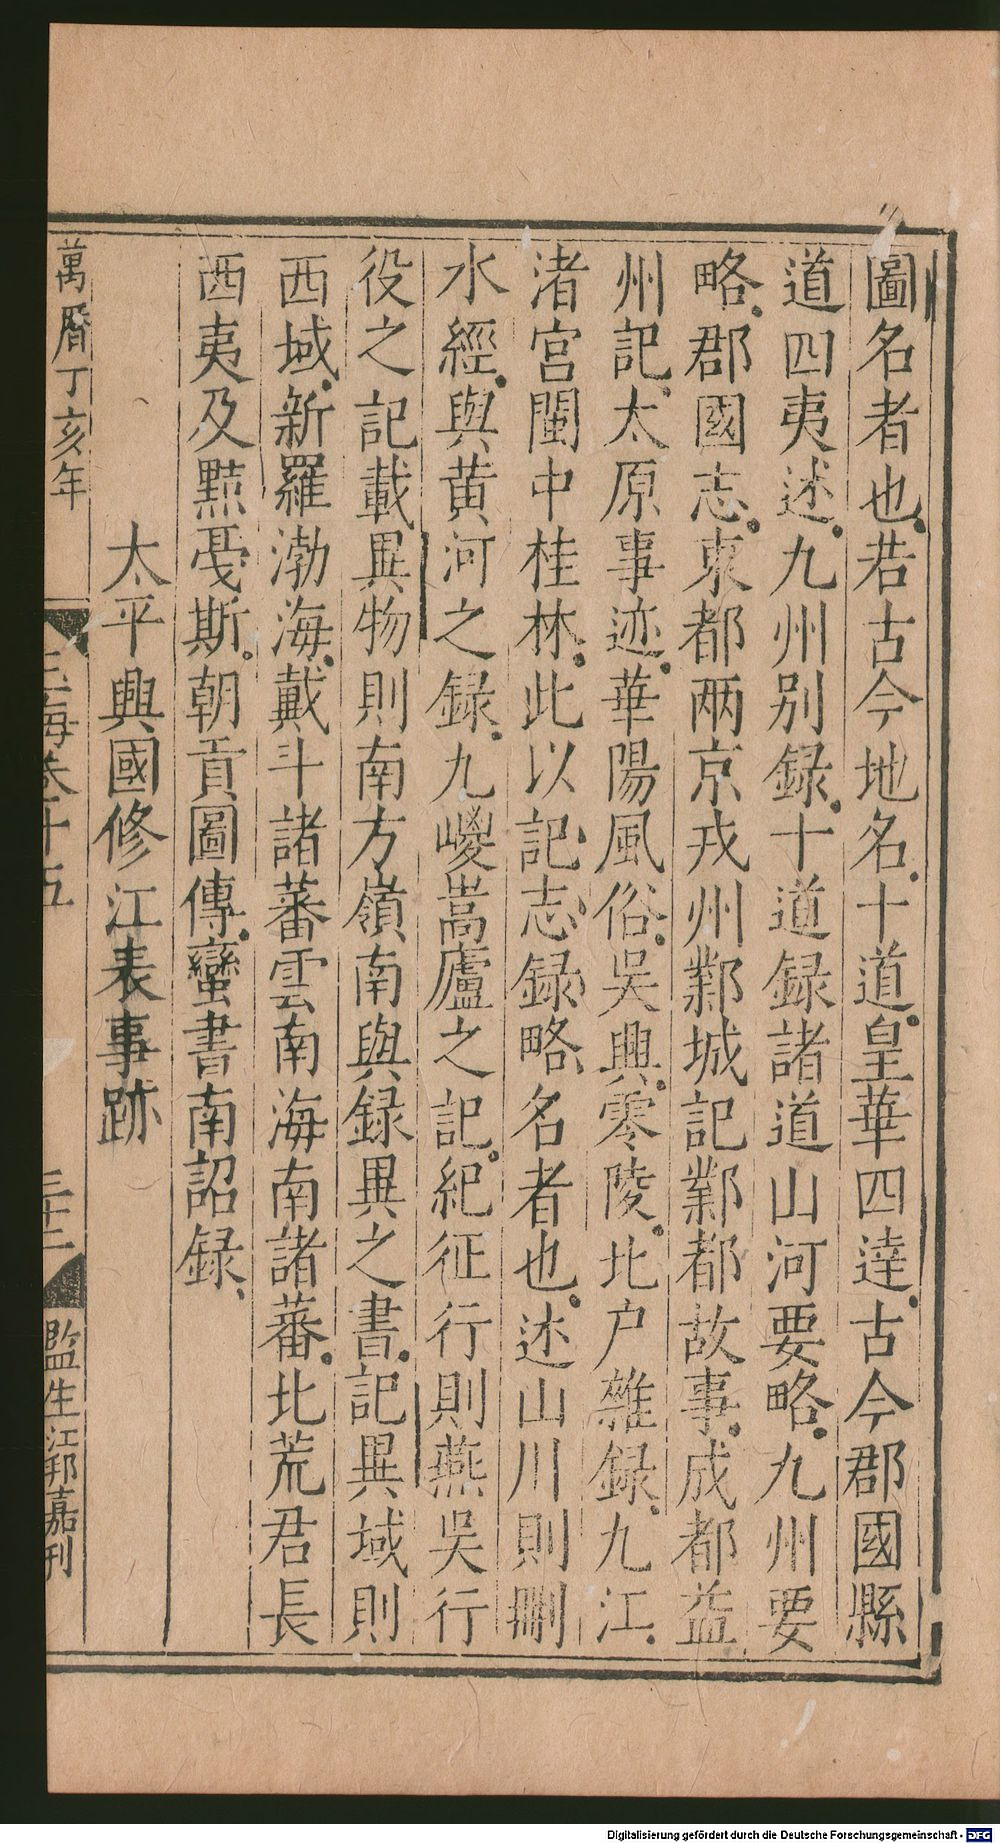 圖名者也若古今地名十道皇華四達古今郡國縣
道四夷述九州別録十道録諸道山河要略九州要
略郡國志東都兩京戎州鄴城記鄴都故事成都益
州記太原事迹華陽風俗吳興零陵北户雜録九江
渚宮閩中桂林此以記志録略名者也述山川則刪
水經與黃河之録九嵕嵩廬之記紀征行則燕吳行
役之記載異物則南方嶺南與録異之書記異域則
西域新羅渤海戴斗諸蕃雲南海南諸蕃北荒君長
西夷及黠戛斯朝貢圖傳蠻書南詔録
太平興國修江表事跡
萬曆丁亥年
玉海卷十五
三十二
監生江邦嘉刊
Digitalisierung gefördert durch die Deutsche Forschungsgemeinschaft - DFG